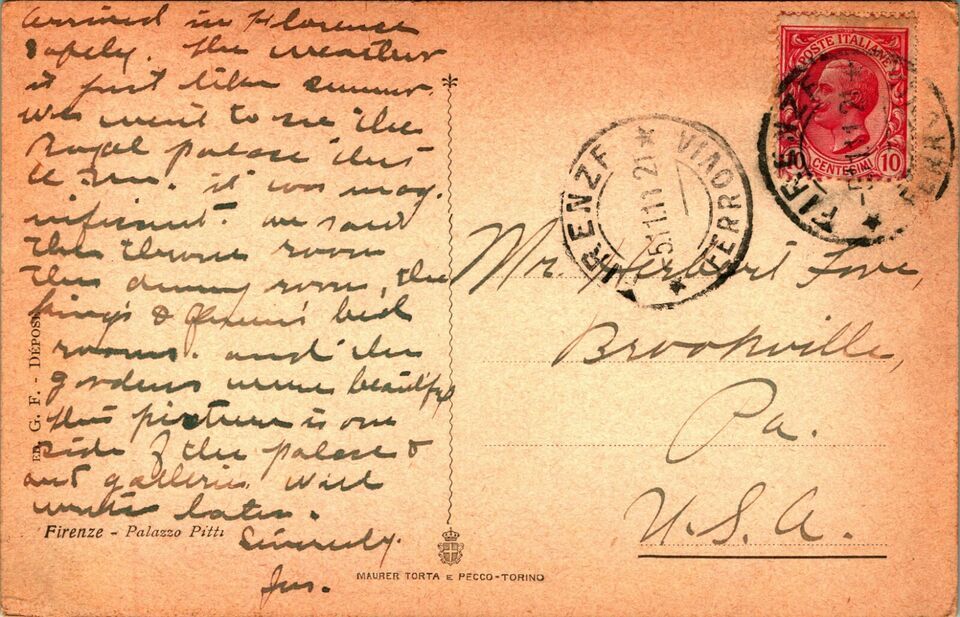 Arrived in Florence
safely. the weather
is just like summer.
we went to see the
Royal palace this
P.M. it was mag-
nificent. we saw
the throne room
the dining room, the
king's & Queen's bed
rooms. and the
gardens were beautiful
this picture is one
side of the palace &
art galleries. Will
write later.
Sincerely.
Jas.
Firenze - Palazzo Pitti
ED. G. F. - DEPOS
MAURER TORTA E PECCO-TORINO
POSTE ITALIANE
CENTESIMI 10
FIRENZE
FERR
FIRENZE FERROVIA
5.11.11 21
Mr Herbert
Brookville,
Pa.
U.S.A.